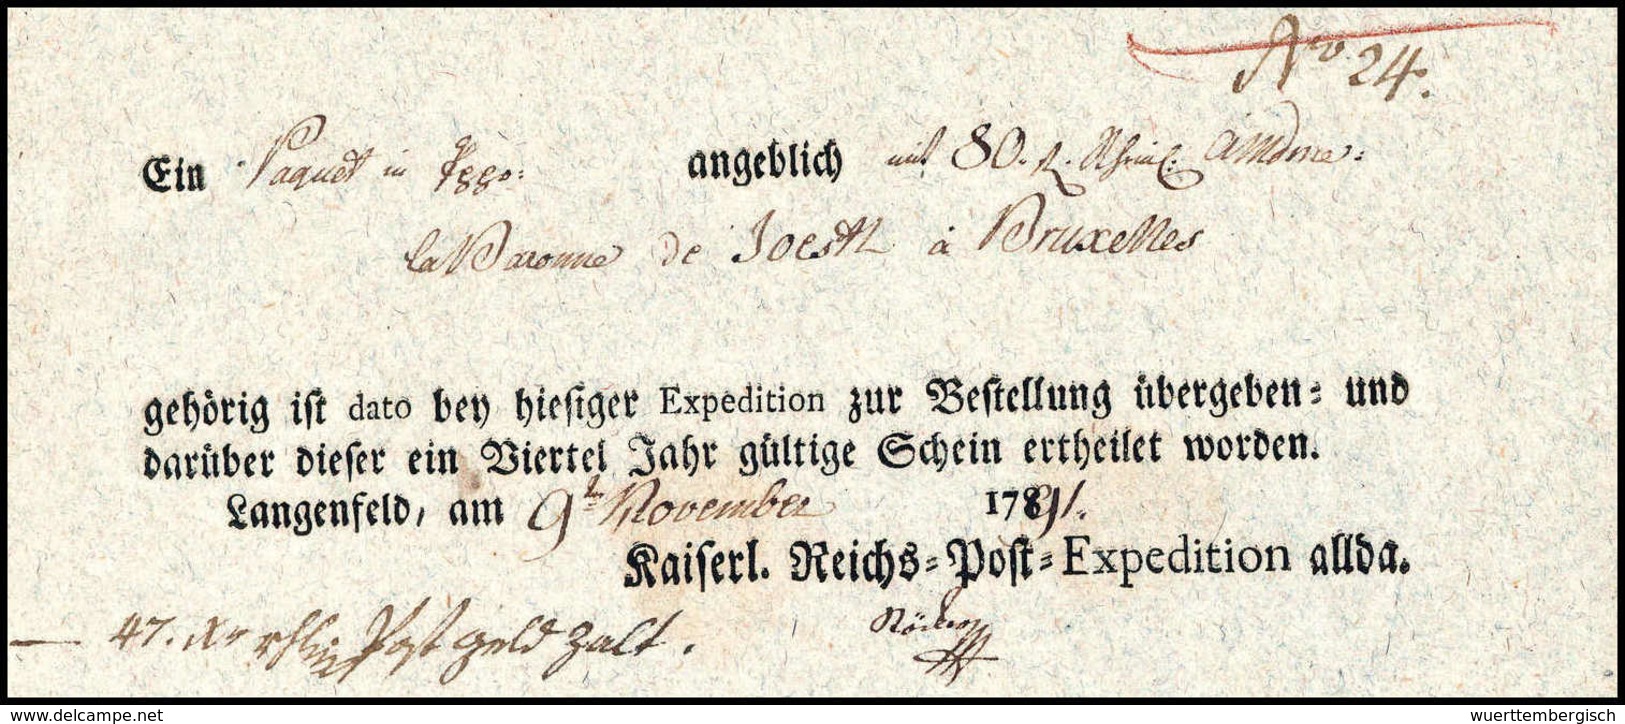 No 24.
Ein Paquet in angeblich mit 80. Rheinl. a Mdme:
la Baronne de Joesth à Bruxelles
gehörig ist dato bey hiesiger Expedition zur Bestellung übergeben- und
darüber dieser ein Viertel Jahr gültige Schein ertheilet worden.
Langenfeld, am 9ten November 1791.
Kaiserl. Reichs-Post-Expedition allda.
47. Xr rhlin Postgeld zalt.
www.delcampe.net
wuerttembergisch